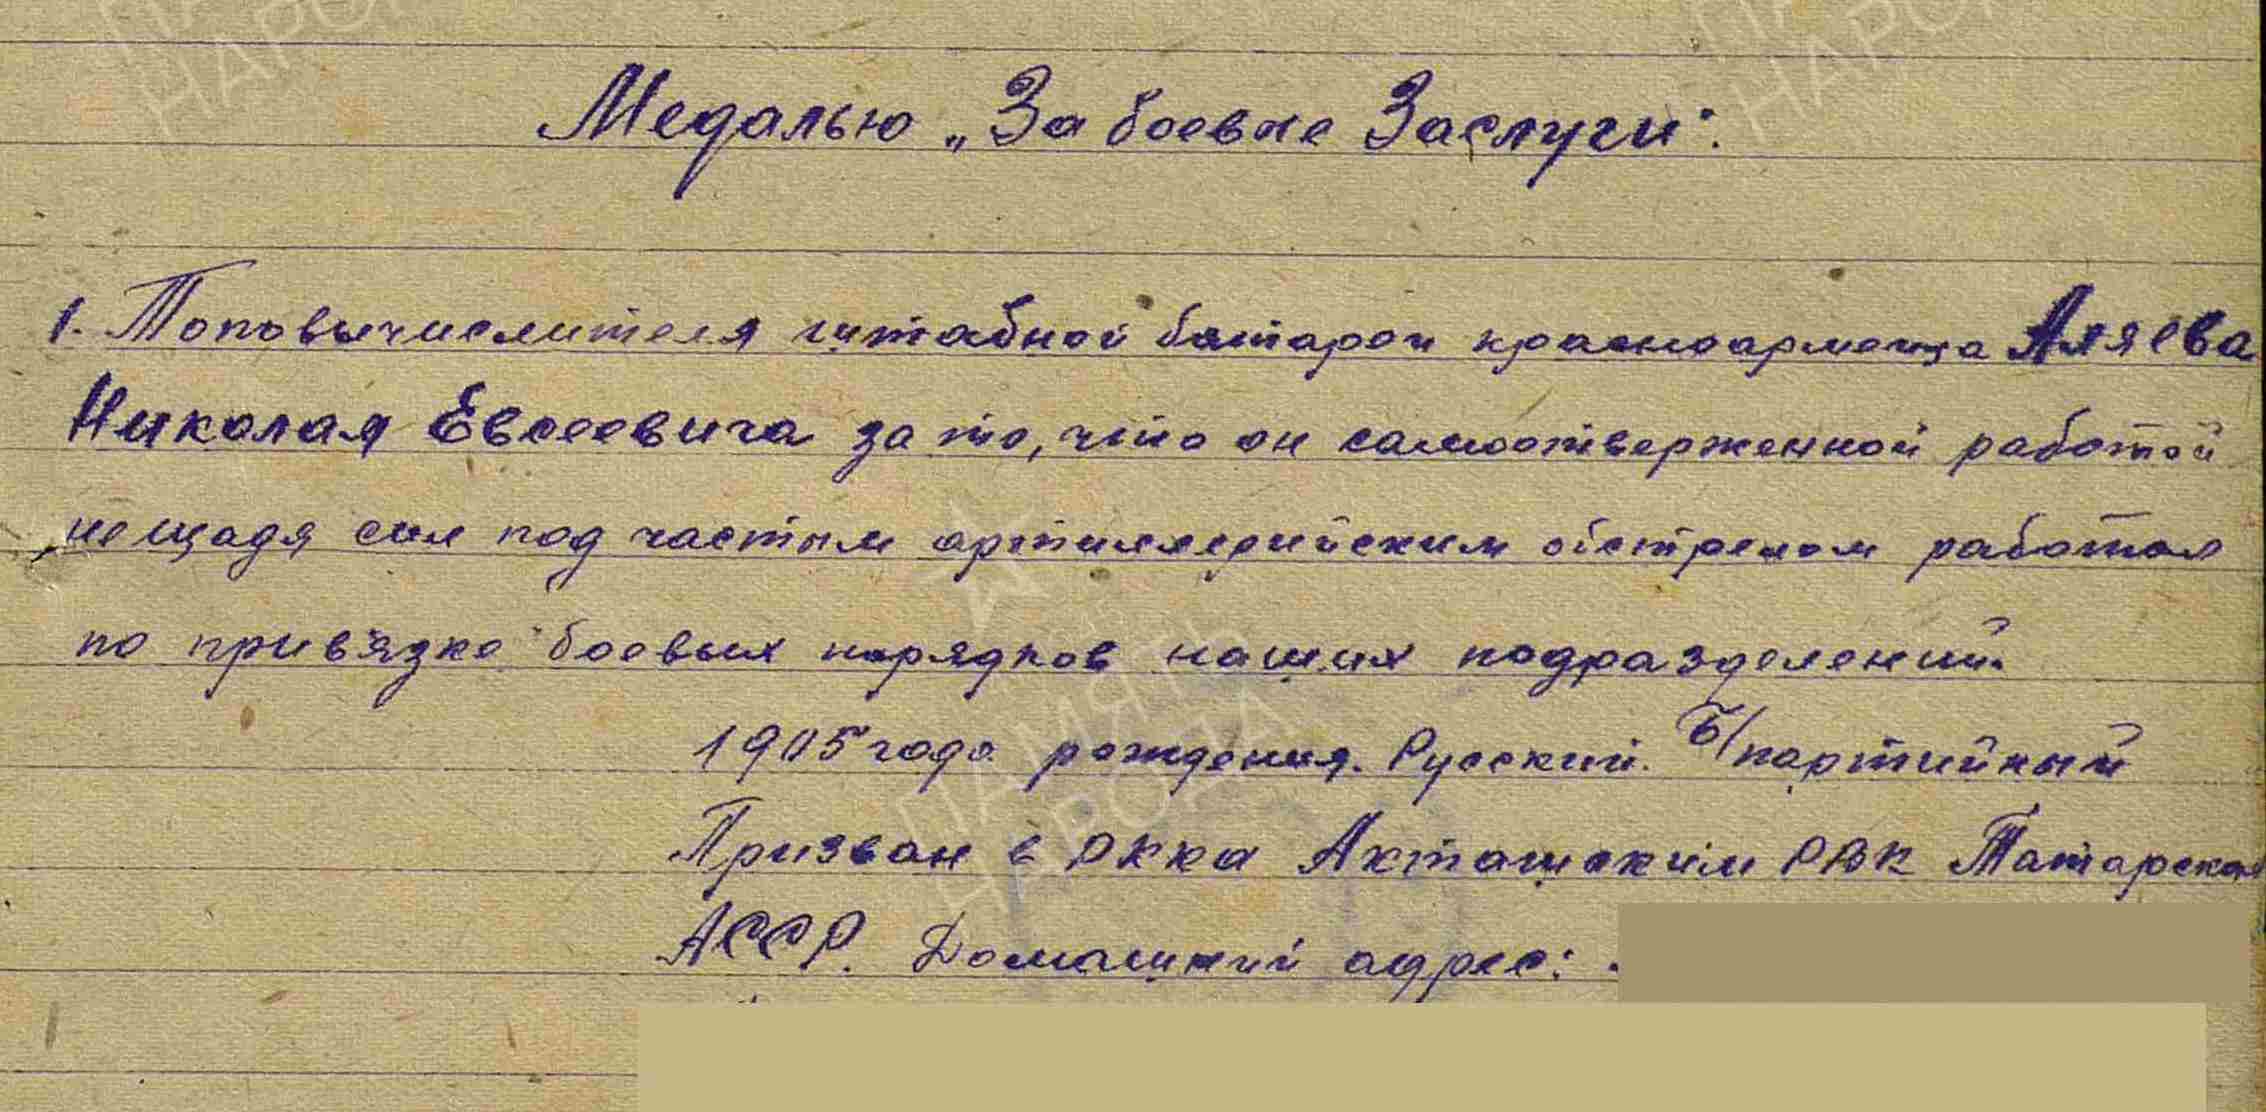 Медалью „За боевые Заслуги":
1. Топовычислителя штабной батареи красноармейца Аляева
Николая Евсеевича за то, что он самоотверженной работой
не щадя сил под частым артиллерийским обстрелом работал
по привязке боевых порядков наших подразделений.
1905 года рождения. Русский. Б/партийный
Призван в РККА Акташским РВК Татарская
АССР. Домашний адрес:
ПАМЯТЬ
НАРОДА